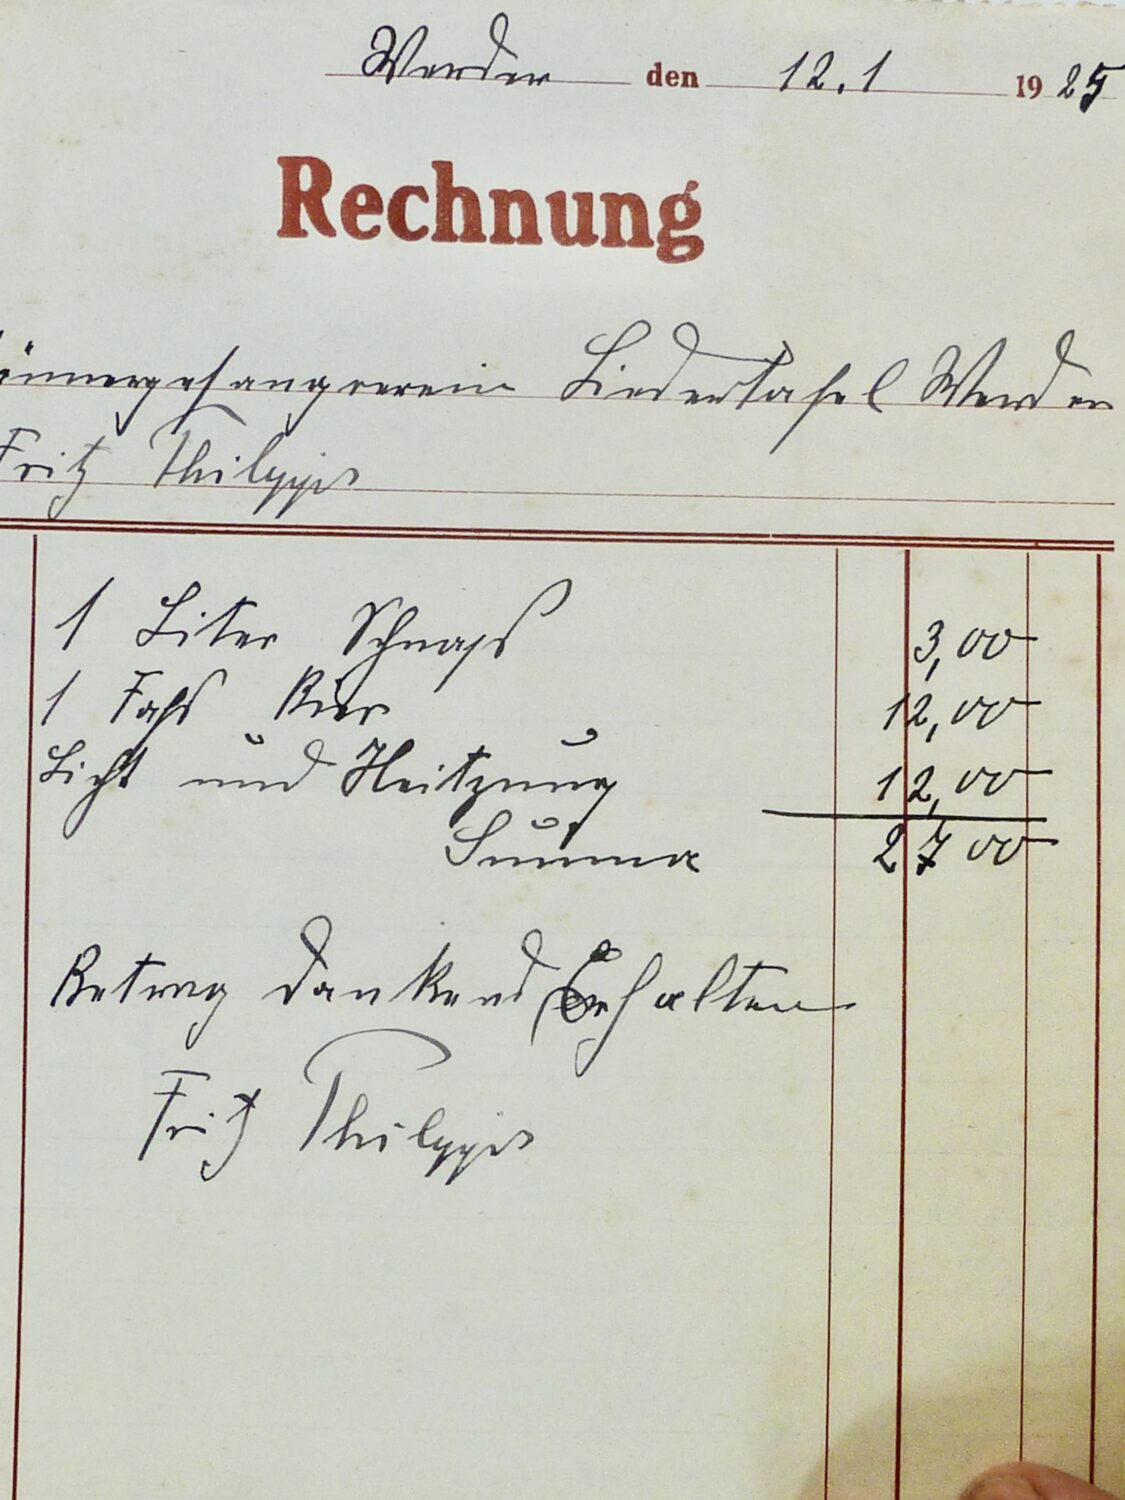 Werder den 12.1 1925
Rechnung
ännergesangverein Liedertafel Werder
Fritz Philipps
1 Liter Schnaps 3,00
1 Faß Bier 12,00
Licht und Heitzung 12,00
Summa 27 00
Betrag dankend Erhalten
Fritz Philipps